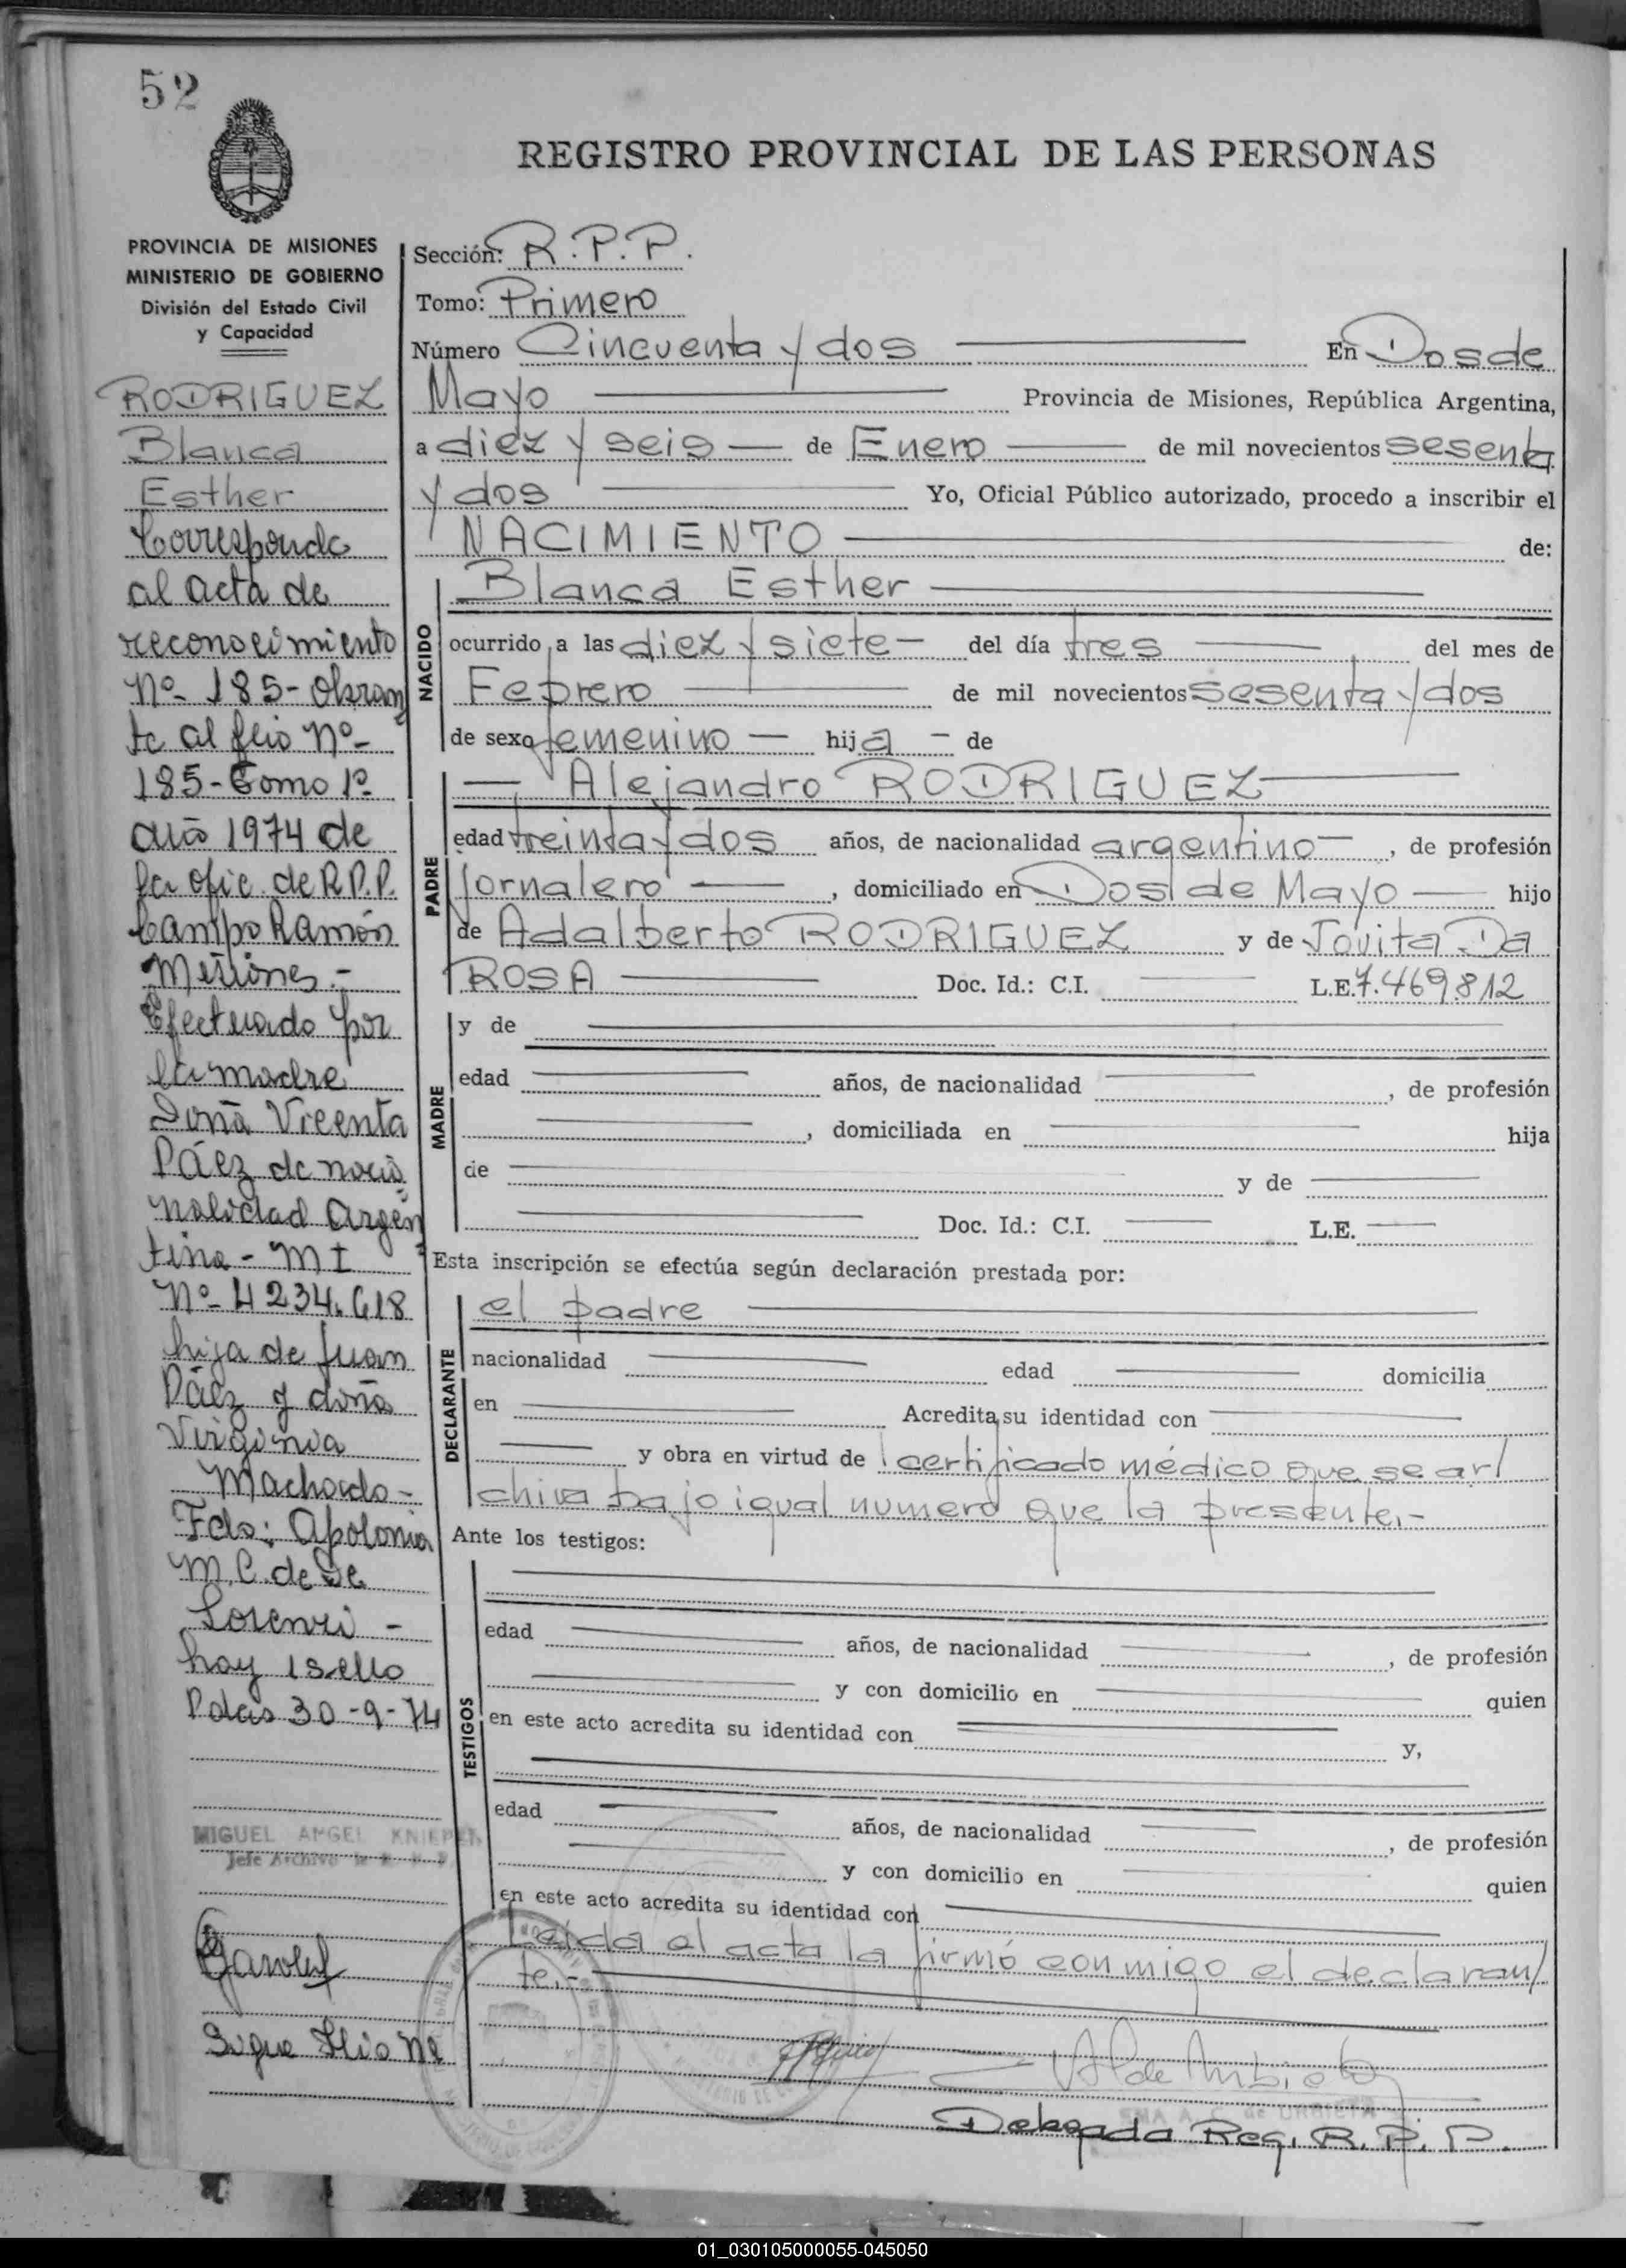 52
REGISTRO PROVINCIAL DE LAS PERSONAS
PROVINCIA DE MISIONES
MINISTERIO DE GOBIERNO
División del Estado Civil
y Capacidad
RODRIGUEZ
Blanca
Esther
Corresponde
al acta de
reconocimiento
Nº- 185- Obran
te al folio Nº-
185- Tomo 1º
año 1974 de
la ofic. de R.P.P.
Campo Ramón
Misiones.-
Efectuado por
la madre
Doña Vicenta
Páez de nacio
nalidad Argen
tina - M I
Nº- 4234.618
hija de Juan
Páez y doña
Virginia
Machado-
Fdo: Apolonia
M.C. de De
Lorenzi -
hay 1 sello
Pdas 30-9-74
MIGUEL ANGEL KNIEPER
Jefe Archivo
Sigue Flio
Sección: R.P.P.
Tomo: Primero
Número Cincuenta y dos En Dos de
Mayo Provincia de Misiones, República Argentina,
a diez y seis de Enero de mil novecientos sesenta
y dos Yo, Oficial Público autorizado, procedo a inscribir el
NACIMIENTO de:
NACIDO
Blanca Esther
ocurrido a las diez y siete del día tres del mes de
Febrero de mil novecientos sesenta y dos
de sexo femenino hija de
PADRE
Alejandro RODRIGUEZ
edad treinta y dos años, de nacionalidad argentino, de profesión
Jornalero, domiciliado en Dos de Mayo hijo
de Adalberto RODRIGUEZ y de Jovita Da
ROSA Doc. Id.: C.I. L.E. 7.469.812
MADRE
y de
edad años, de nacionalidad , de profesión
, domiciliada en hija
de y de
Doc. Id.: C.I. L.E.
Esta inscripción se efectúa según declaración prestada por:
DECLARANTE
el padre
nacionalidad edad domicilia
en Acredita su identidad con
y obra en virtud de certificado médico que se ar/
chiva bajo igual numero que la presente.-
Ante los testigos:
TESTIGOS
edad años, de nacionalidad , de profesión
y con domicilio en quien
en este acto acredita su identidad con y,
edad años, de nacionalidad , de profesión
y con domicilio en quien
en este acto acredita su identidad con
Leída el acta la firmó conmigo el declaran/
te.-
A. de URBIETA
Delegada Reg. R. P. P.
01_030105000055-045050